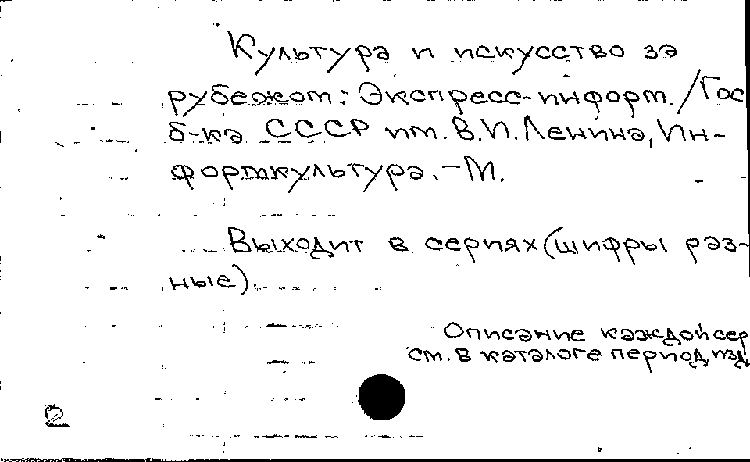 Культура и искусство за
рубежом: Экспресс-информ. / Гос
б-ка СССР им. В.И. Ленина, Ин-
формкультура. – М.
Выходит в сериях (шифры раз-
ные).
Описание каждой сер
см. в каталоге период. изд
2